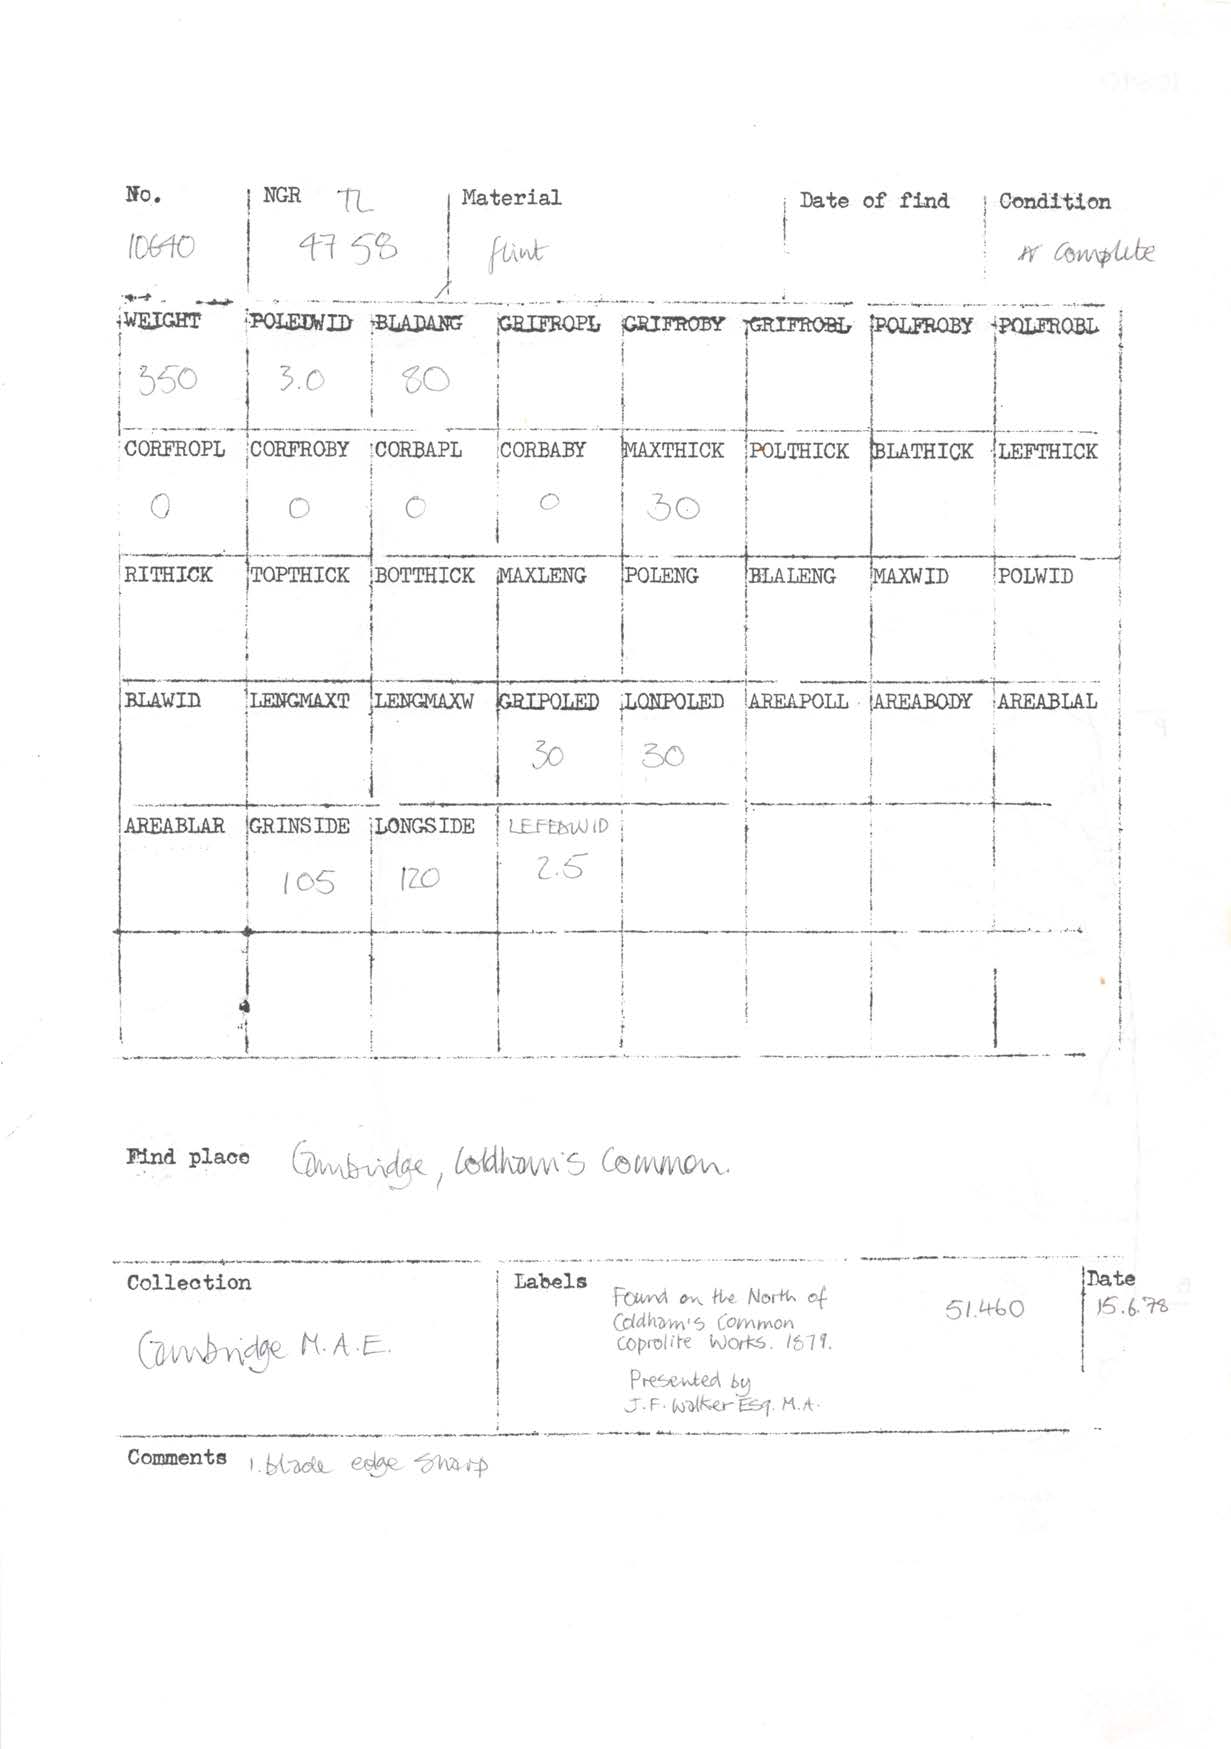 No. NGR TL Material Date of find Condition
10640 47 58 flint complete
WEIGHT POLEDWID BLADANG GRIFROPL GRIFROBY GRIFROBL POLFROBY POLFROBL
350 3.0 80
CORFROPL CORFROBY CORBAPL CORBABY MAXTHICK POLTHICK BLATHICK LEFTHICK
0 0 0 0 30
RITHICK TOPTHICK BOTTHICK MAXLENG POLENG BLALENG MAXWID POLWID
BLAWID LENGMAXT LENGMAXW GRIPOLED LONPOLED AREAPOLL AREABODY AREABLAL
30 30
AREABLAR GRINSIDE LONGSIDE LEFEDWID
105 120 2.5
Find place Cambridge, Coldham's Common.
Collection Labels Date
Found on the North of 51.460 15.6.78
Coldham's Common
Coprolite Works. 1879.
Cambridge M.A.E.
Presented by
J.F. Walker Esq. M.A.
Comments 1. blade edge sharp